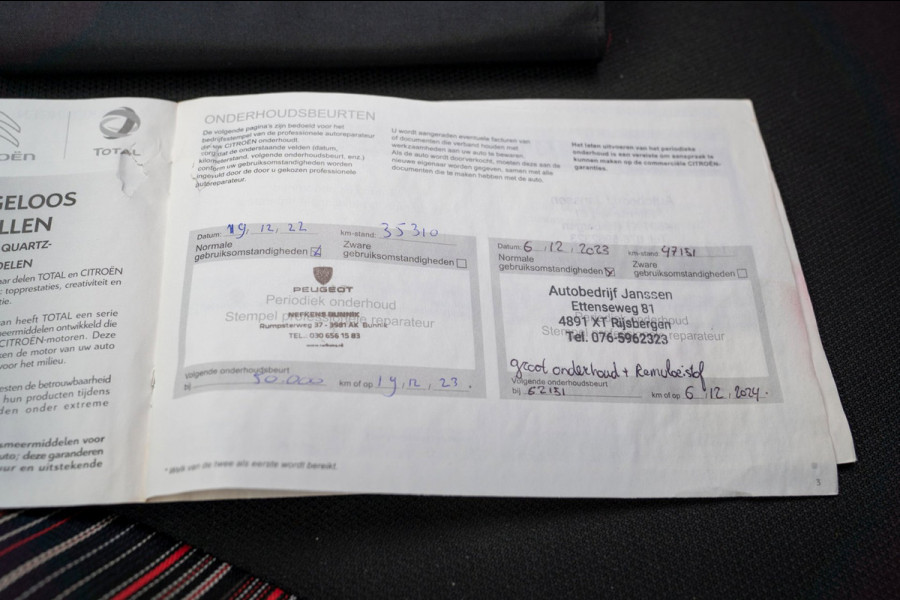 OËN
TOTAL
GELOOS
LLEN
QUARTZ-
DELEN
aar delen TOTAL en CITROËN
: topprestaties, creativiteit en
tie.
an heeft TOTAL een serie
meermiddelen ontwikkeld die
CITROËN-motoren. Deze
ken de motor van uw auto
voor het milieu.
esten de betrouwbaarheid
hun producten tijdens
den onder extreme
smeermiddelen voor
uto; deze garanderen
uur en uitstekende
ONDERHOUDSBEURTEN
De volgende pagina's zijn bedoeld voor het
bedrijfsstempel van de professionele autoreparateur
die uw CITROËN onderhoudt.
Zorg dat de onderstaande velden (datum,
kilometerstand, volgende onderhoudsbeurt, enz.)
conform uw gebruiksomstandigheden worden
ingevuld door de door u gekozen professionele
autoreparateur.
U wordt aangeraden eventuele facturen van
of documenten die verband houden met
werkzaamheden aan uw auto te bewaren.
Als de auto wordt doorverkocht, moeten deze aan de
nieuwe eigenaar worden gegeven, samen met alle
documenten die te maken hebben met de auto.
Het laten uitvoeren van het periodieke
onderhoud is een vereiste om aanspraak te
kunnen maken op de commerciële CITROËN-
garanties.
Datum: 19, 12, 22 km-stand: 35310
Normale
gebruiksomstandigheden
Zware
gebruiksomstandigheden
PEUGEOT
Periodiek onderhoud
NEFKENS BUNNIK
Stempel professionele reparateur
Rumpsterweg 37 - 3981 AK Bunnik
TEL.: 030 656 15 83
www.nefkens.nl
Volgende onderhoudsbeurt
bij 50.000 km of op 19, 12, 23.
Datum: 6, 12, 2023 km-stand 47151
Normale
gebruiksomstandigheden
Zware
gebruiksomstandigheden
Autobedrijf Janssen
Ettenseweg 81
4891 XT Rijsbergen
Tel. 076-5962323
groot onderhoud + Remvloeistof
Volgende onderhoudsbeurt
bij 62151 km of op 6, 12, 2024.
* Welk van de twee als eerste wordt bereikt.
3